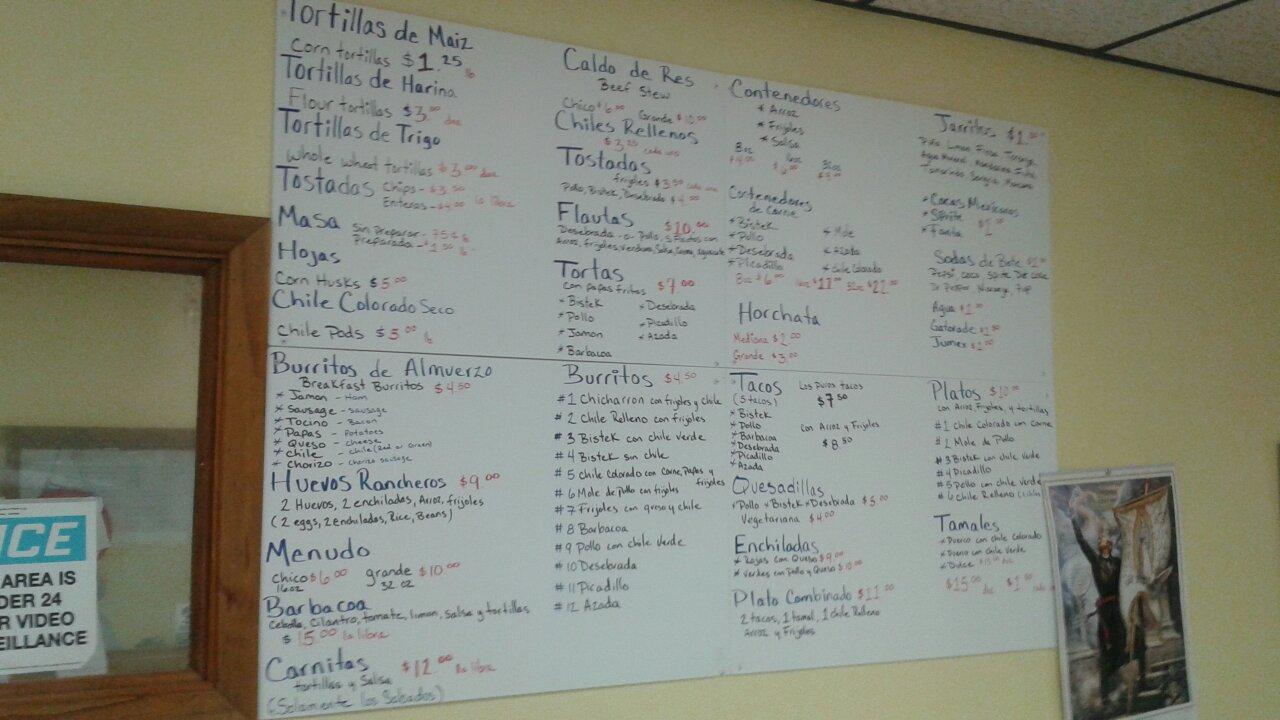 Tortillas de Maiz
Corn tortillas $1.25 lb
Tortillas de Harina
Flour tortillas $3.00 doz
Tortillas de Trigo
Whole wheat tortillas $3.00 doz
Tostadas Chips - $3.50
Enteras - $4.00 la libra
Masa Sin Preparar - 75¢ lb
Preparada - $1.50 lb
Hojas
Corn Husks $5.00
Chile Colorado Seco
Chile Pods $5.00 lb
Caldo de Res
Beef Stew
Chico $6.00 Grande $10.00
Chiles Rellenos
$3.25 cada uno
Tostadas
frijoles $3.50 cada una
Pollo, Bistek, Desebrada $4.00
Flautas $10.00
Desebrada o Pollo, 5 Flautas con
Arroz, frijoles, verdura, Salsa, Crema, aguacate
Tortas
con papas fritas $7.00
* Bistek * Desebrada
* Pollo * Picadillo
* Jamon * Azada
* Barbacoa
Contenedores
* Arroz
* Frijoles
* Salsa
8oz 16oz 32oz
Contenedores
de Carne
* Bistek * Mole
* Pollo * Azada
* Desebrada * Chile Colorado
* Picadillo
8oz $6.00 16oz $11.00 32oz $21.00
Horchata
Mediana $2.00
Grande $3.00
Jarritos $1.00
Piña, Limon, Fresa, Toronja,
Agua Mineral, Mandarina,
Tamarindo, Sangria, Manzana
* Cocas Mexicanas
* Sprite $1
* Fanta
Sodas de Bote
Pepsi, Coca, Sprite, Die Coke
Dr Pepper, Naranja, 7up
Agua $1.00
Gatorade
Jumex $1.00
Burritos de Almuerzo
Breakfast Burritos $4.50
* Jamon - Ham
* Sausage - Sausage
* Tocino - Bacon
* Papas - Potatoes
* Queso - cheese
* Chile - chile (Red or Green)
* Chorizo - Chorizo sausage
Huevos Rancheros $9.00
2 Huevos, 2 enchiladas, Arroz, frijoles
(2 eggs, 2 enchiladas, Rice, Beans)
Menudo
chico $6.00 grande $10.00
16oz 32 oz
Barbacoa
Cebolla, Cilantro, tomate, limon, Salsa y tortillas
$15.00 la libra
Carnitas $12.00 la libra
tortillas y Salsa
(Solamente los Sabados)
Burritos $4.50
#1 Chicharron con frijoles y chile
#2 Chile Relleno con frijoles
#3 Bistek con chile verde
#4 Bistek sin chile
#5 Chile Colorado con Carne, Papas y
frijoles
#6 Mole de pollo con frijoles
#7 Frijoles con queso y chile
#8 Barbacoa
#9 Pollo con chile verde
#10 Desebrada
#11 Picadillo
#12 Azada
Tacos Los puros tacos
(5 tacos) $7.50
* Bistek
* Pollo con Arroz y Frijoles
* Barbacoa $8.50
* Desebrada
* Picadillo
* Azada
Quesadillas
* Pollo * Bistek * Desebrada $5.00
Vegetariana $4.00
Enchiladas
* Rojas con Queso $9.00
* Verdes con Pollo y Queso $10.00
Plato Combinado $11.00
2 tacos, 1 tamal, 1 chile Relleno
Arroz y Frijoles
Platos $10.00
con Arroz, Frijoles, y tortillas
#1 Chile Colorado con Carne
#2 Mole de Pollo
#3 Bistek con chile verde
#4 Picadillo
#5 Pollo con chile verde
#6 Chile Relleno
Tamales
* Puerco con chile Colorado
* Puerco con chile Verde
* Dulce $15.00 doz
$15.00 doz $1
ICE
AREA IS
DER 24
R VIDEO
EILLANCE